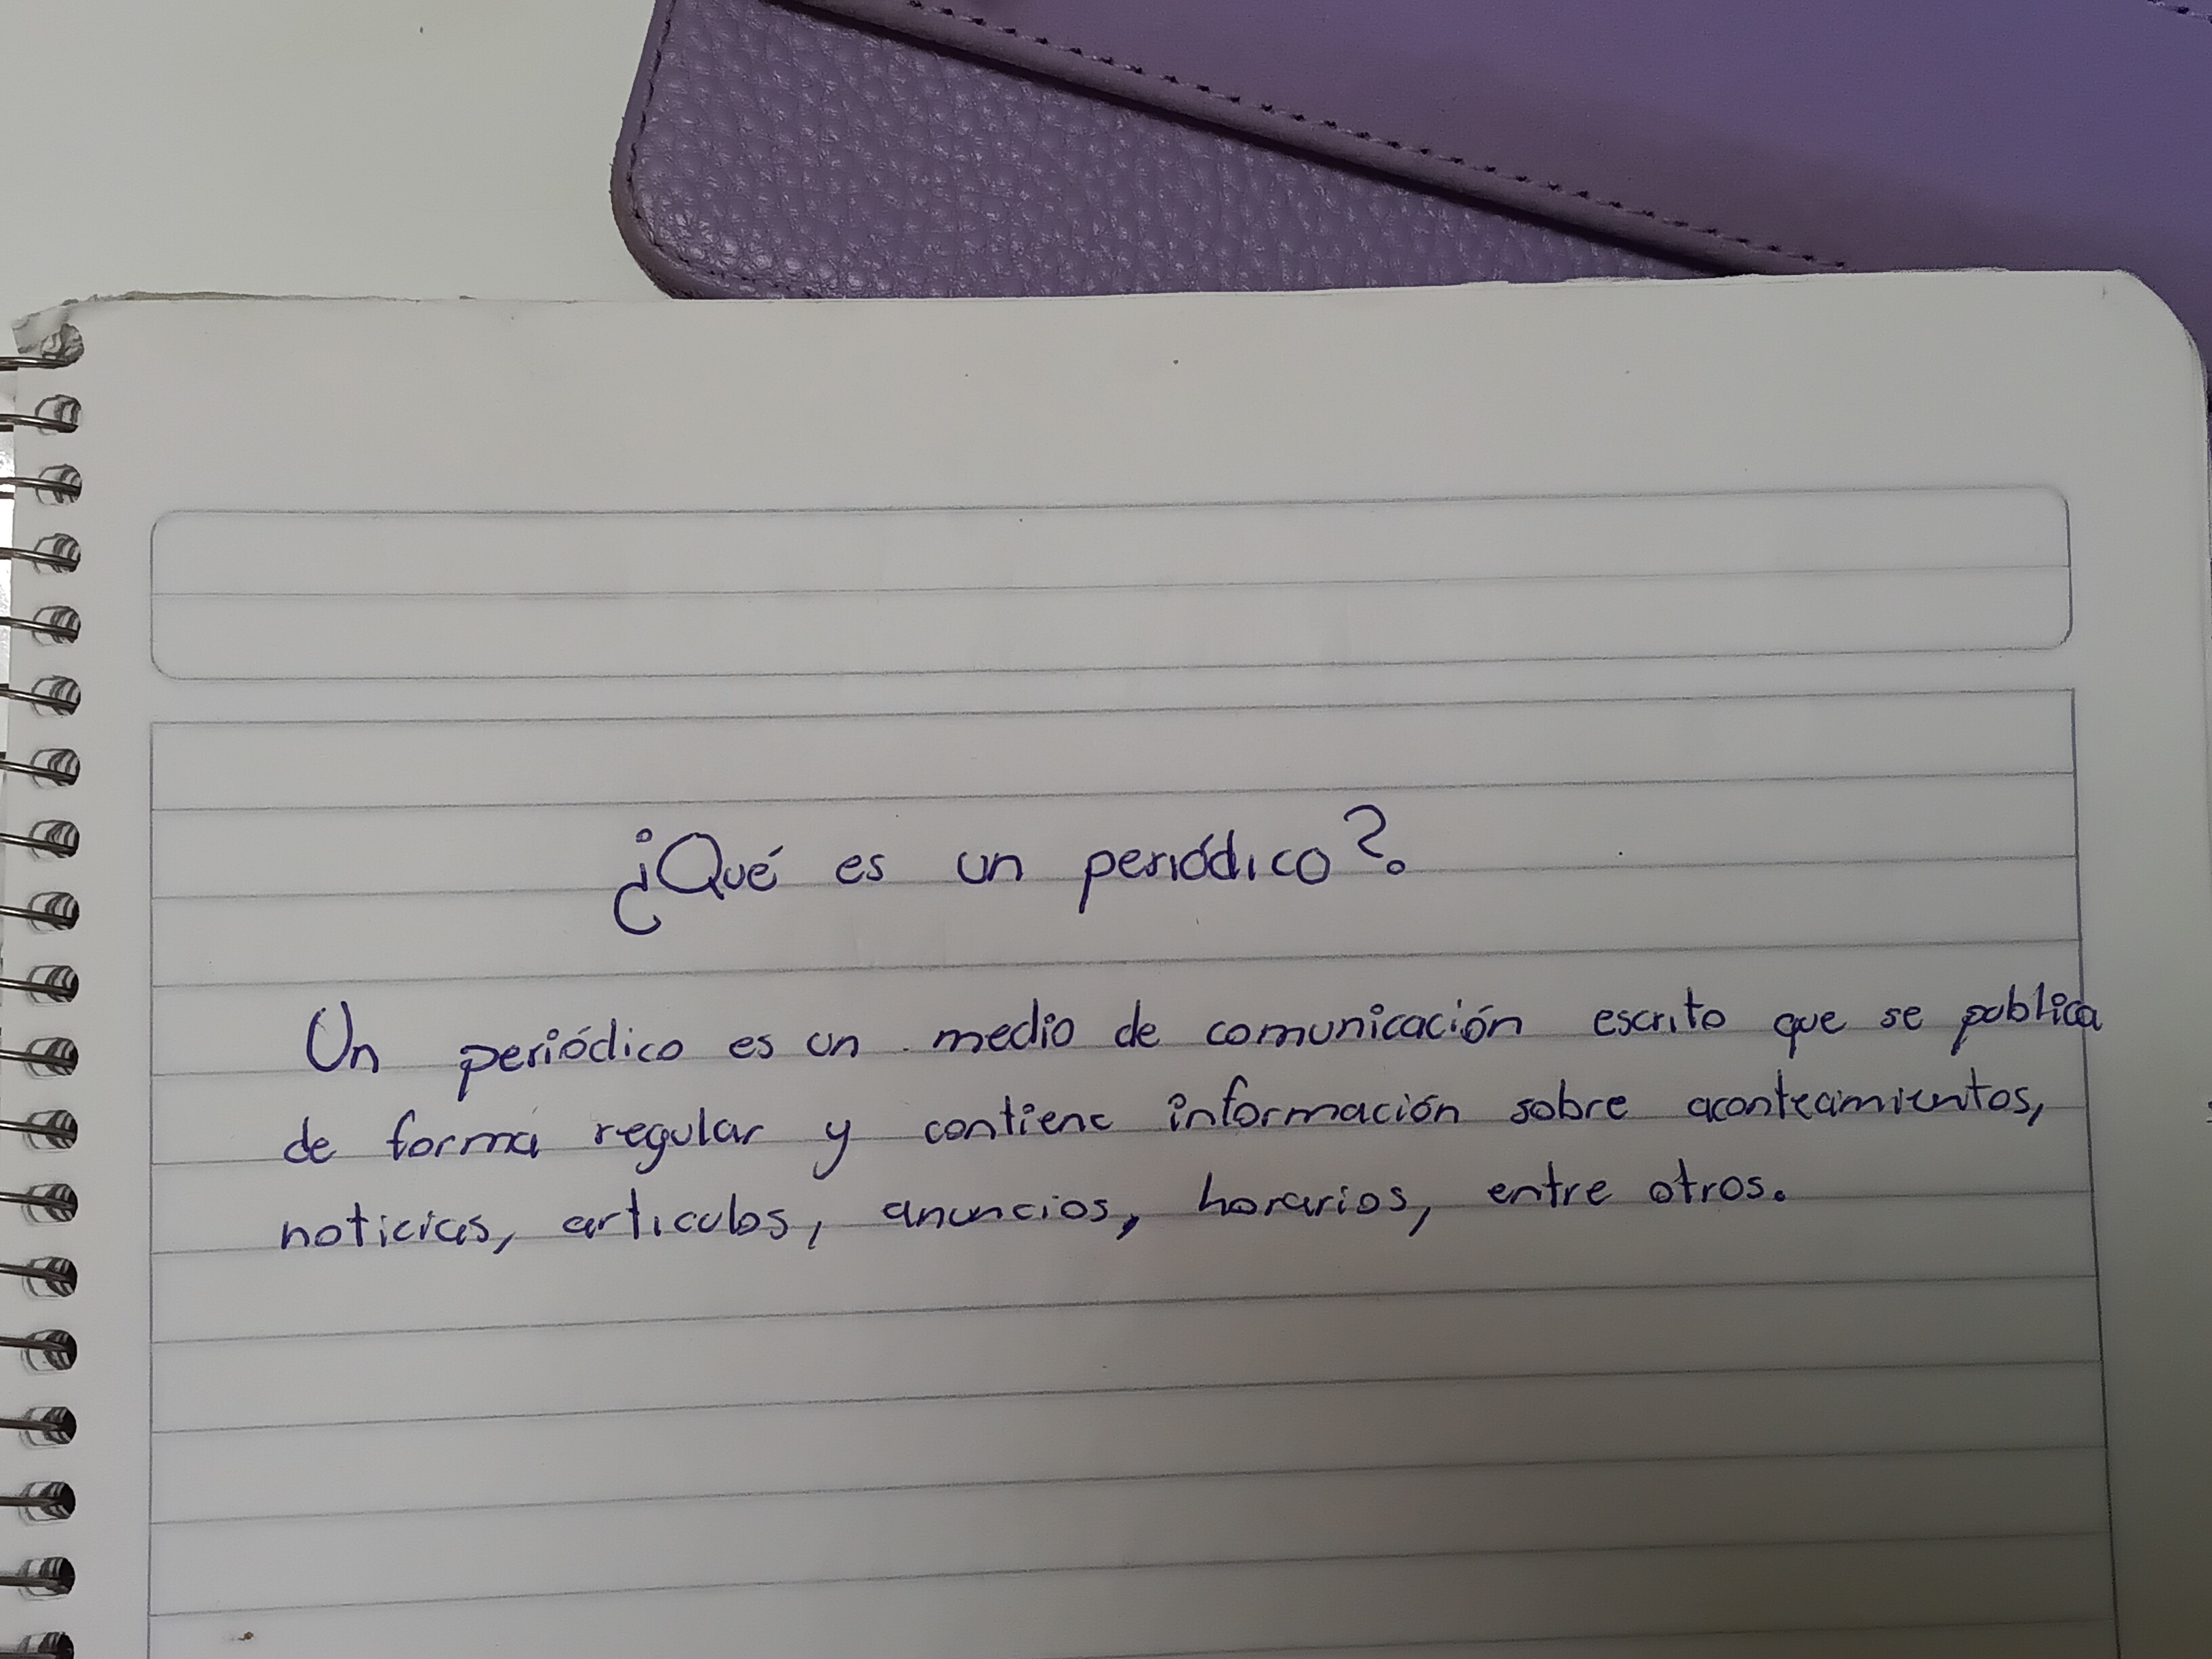 ¿Qué es un periódico?
Un periódico es un medio de comunicación escrito que se publica
de forma regular y contiene información sobre acontecimientos,
noticias, articulos, anuncios, horarios, entre otros.